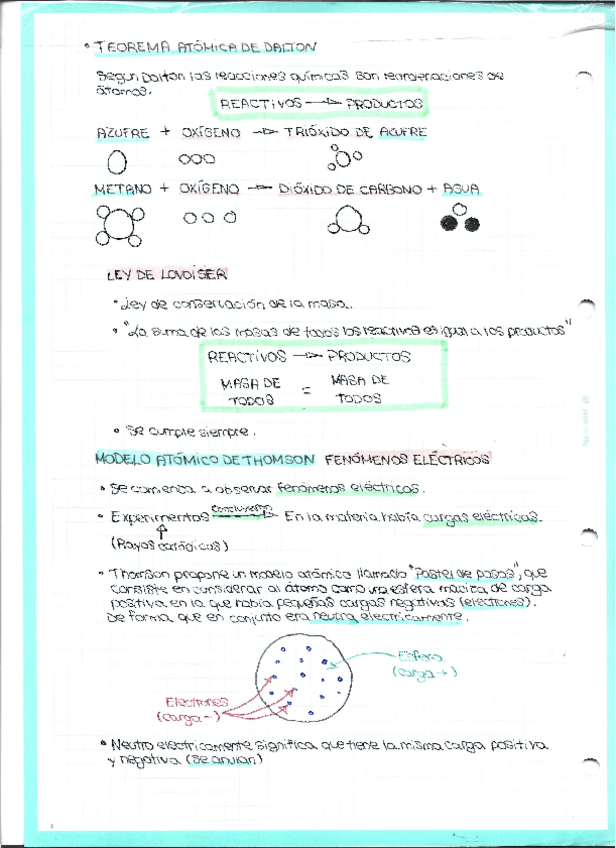 • TEOREMA ATÓMICA DE DALTON
Segun Dalton las reacciones químicas son reordenaciones de
átomos.
REACTIVOS → PRODUCTOS
AZUFRE + OXÍGENO → TRIÓXIDO DE AZUFRE
METANO + OXÍGENO → DIÓXIDO DE CARBONO + AGUA
LEY DE LOVOISER
• Ley de conservación de la masa.
• "La suma de las masas de todos los reactivos es igual a los productos"
REACTIVOS → PRODUCTOS
MASA DE TODOS = MASA DE TODOS
• Se cumple siempre.
MODELO ATÓMICO DE THOMSON FENÓMENOS ELÉCTRICOS
• Se comienza a observar fenómenos eléctricos.
• Experimentos Conclusión → En la materia había cargas eléctricas.
↑
(Rayos catódicos)
• Thomson propone un modelo atómico llamado "Pastel de pasas", que
consiste en considerar al átomo como una esfera maciza de carga
positiva en la que había pequeñas cargas negativas (electrones).
De forma que en conjunto era neutra electricamente.
Esfera
(carga +)
Electrones
(carga -)
• Neutro electricamente significa que tiene la misma carga positiva
y negativa (Se anulan)